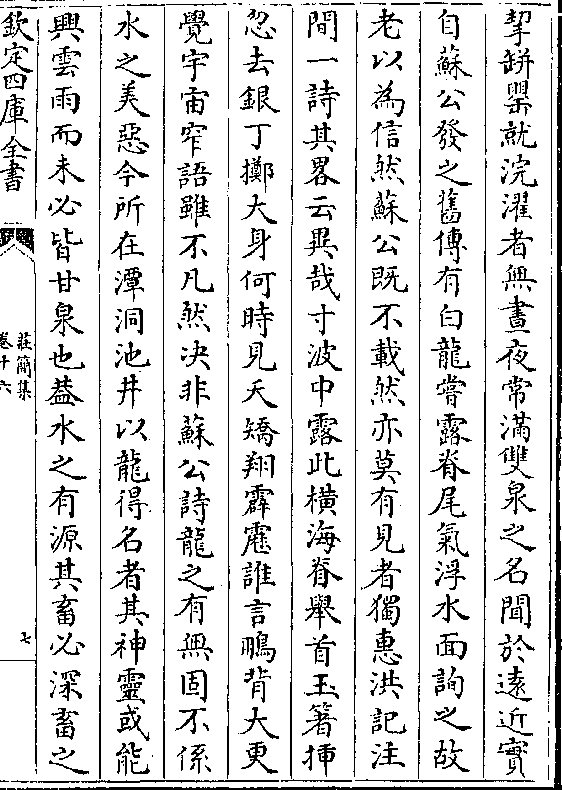 挈缾罌就浣濯者無晝夜常滿雙泉之名聞於遠近實
自蘇公發之舊傳有白龍嘗露脊尾氣浮水面詢之故
老以為信然蘇公既不載然亦莫有見者獨惠洪記注
間一詩其畧云異哉寸波中露此橫海脊舉首玉箸揷
忽去銀丁擲大身何時見夭矯翔霹靂誰言鵬背大更
覺宇宙窄語雖不凡然决非蘇公詩龍之有無固不係
水之美惡今所在潭洞池井以龍得名者其神靈或能
興雲雨而未必皆甘泉也葢水之有源其畜必深畜之
欽定四庫全書
莊簡集
卷十六
七